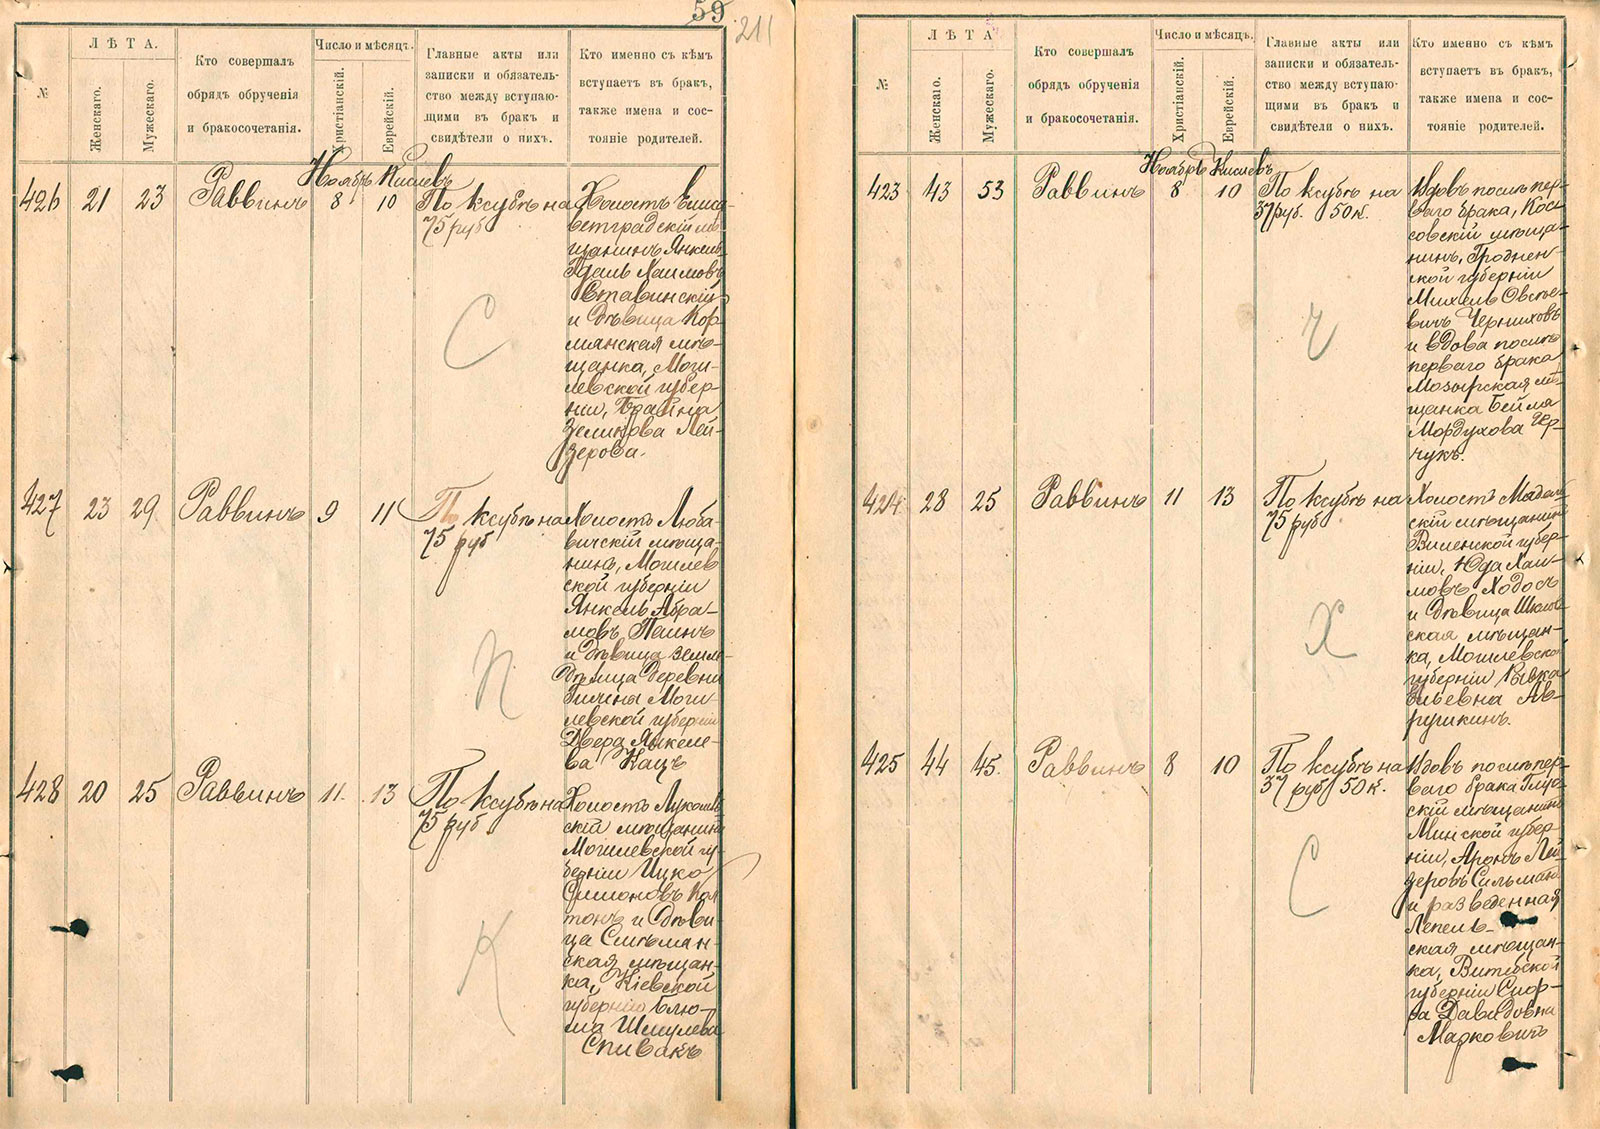 59
211
№
ЛѢТА.
Женскаго.
Мужескаго.
Кто совершалъ
обрядъ обрученія
и бракосочетанія.
Число и мѣсяцъ.
Христіанскій.
Еврейскій.
Главные акты или
записки и обязатель-
ство между вступаю-
щими въ бракъ и
свидѣтели о нихъ.
Кто именно съ кѣмъ
вступаетъ въ бракъ,
также имена и сос-
тояніе родителей.
Ноябрь Кислевъ
426 21 23 Раввинъ 8 10 По ксубѣ на
75 руб
Холостъ Елиса-
ветградскій мѣ-
щанинъ Янкель
Хаимовъ
Ставинскій
и дѣвица Кор-
мянская мѣ-
щанка, Моги-
левской губер-
ніи, Брайна
Зеликова Лей-
зерова.
С
427 23 29 Раввинъ 9 11 По ксубѣ на
75 руб
Холостъ Люба-
вичскій мѣща-
нинъ, Могилев
ской губерніи
Янкель Абра-
мовъ Паинъ
и дѣвица земле-
дѣлица деревни
Моги-
левской губерніи
Двера Янкеле-
ва Кацъ
П
428 20 25 Раввинъ 11. 13 По ксубѣ на
75 руб
Холостъ Лукомль
скій мѣщанинъ
Могилевской гу-
берніи Ицко
Симоновъ Кол
тонъ и дѣви-
ца Смѣлян-
ская мѣщан-
ка, Кіевской
губерніи Блю-
ма Шмулева
Спивакъ
К
№
ЛѢТА
Женскаго.
Мужескаго.
Кто совершалъ
обрядъ обрученія
и бракосочетанія.
Число и мѣсяцъ.
Христіанскій.
Еврейскій.
Главные акты или
записки и обязатель-
ство между вступаю-
щими въ бракъ и
свидѣтели о нихъ.
Кто именно съ кѣмъ
вступаетъ въ бракъ,
также имена и сос-
тояніе родителей.
Ноябрь Кислевъ
423 43 53 Раввинъ 8 10 По ксубѣ на
37 руб. 50 к.
Вдовъ послѣ пер-
ваго брака, Кос-
совскій мѣща-
нинъ, Гроднен-
ской губерніи
Михель Овсѣе-
вичъ Черниховъ
и вдова послѣ
перваго брака
Мозырская мѣ
щанка Бейля
Мордухова Гер-
чукъ.
Ч
424 28 25 Раввинъ 11 13 По ксубѣ на
75 руб
Холостъ
скій мѣщанинъ
Виленской губер-
ніи, Юда Хаи-
мовъ Ходосъ
и дѣвица Шклов
ская мѣщан-
ка, Могилевской
губерніи Ривка
Ильевна Ав-
рушкинъ.
Х
425 44 45. Раввинъ 8 10 По ксубѣ на
37 руб 50 к.
Вдовъ послѣ пер-
ваго брака Глус-
скій мѣщанинъ
Минской губер-
ніи, Аронъ Лей
зеровъ Сильман
и разведенная
Лепель-
ская мѣщан-
ка, Витебской
губерніи Сиф-
ра Давидовна
Марковичъ
С